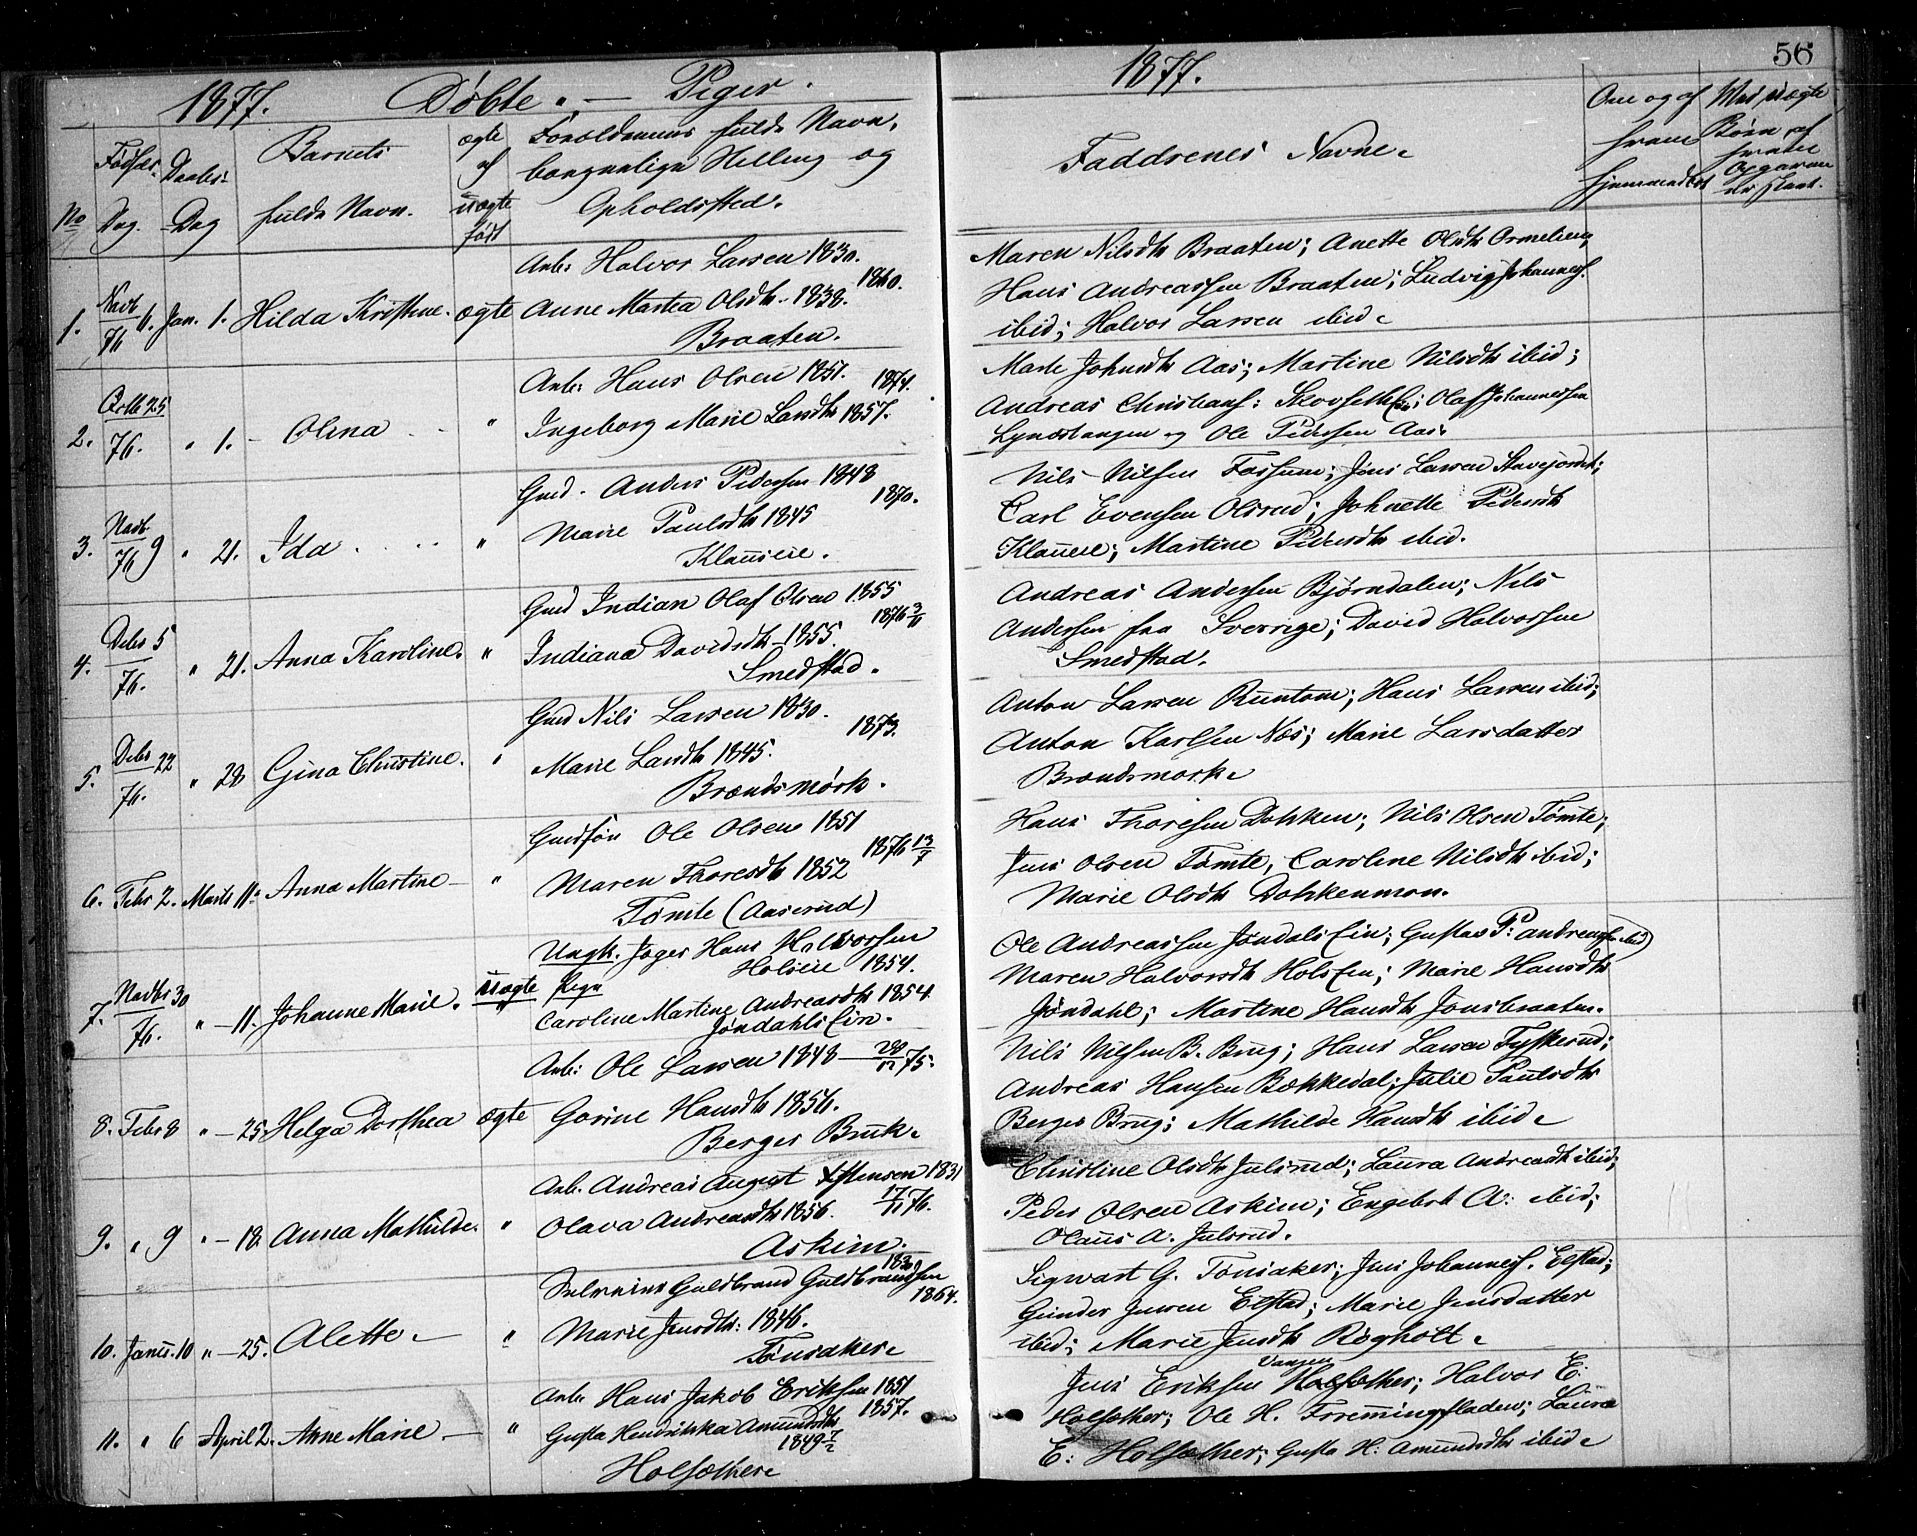 1877. Døbte. — Piger.
No
Fødsels-
Dag.
Daabs-
Dag
Barnets
fulde Navn.
ægte
af
uægte
født
Forældrenes fulde Navn,
borgerlige Stilling og
Opholdssted.
Arb: Halvor Larsen 1830.
1860.
1. Novb 6. 76 Jan. 1. Hilda Kristine. ægte Anne Martea Olsdtr. 1838.
Braaten.
Arb: Hans Olsen 1851. 1874.
2. Octb 25 76. " 1. Olina " Ingeborg Marie Larsdtr 1857.
Gmd. Anders Pedersen 1848
1870.
3. Novb. 9 76 " 21. Ida " Marie Paulsdtr 1845
Klauseie.
Gmd Indian Olaf Olsen 1855
1876 3/6
4. Debr 5 76. " 21. Anna Karoline. " Indiana Davidsdtr 1855.
Smedstad.
Gmd Nils Larsen 1830.
1873.
5. Debr 22 76. " 28 Gina Christine. " Marie Larsdtr 1845.
Brændsmørk.
Gmdsøn Ole Olsen 1851
1876 13/7
6. Febr 2. Marts 11. Anna Martine — " Maren Thoresdtr 1852
Tømte (Aaserud)
Ungk. Jæger Hans Halvorsen
Holseie 1854.
7. Novbr 30 76. " — 11. Johanne Marie. uægte Pige
Caroline Martine Andreasdtr 1854.
Jøndahls Ein.
Arb: Ole Larsen 1848 — 28/12 75.
8. Febr 8 " — 25. Helga Dorthea ægte Gorine Hansdtr 1856.
Berger Bruk.
Arb. Andreas August 1831
17/11 76.
9. " 9 " — 18. Anna Mathilde. " Olava Andreasdtr 1856.
Askim.
1839
Selveier Guldbrand Guldbrandsen
1864.
10. Janu. 10 " — 25. Alette. — " Marie Jensdtr: 1846.
Tønsaker.
Arb. Hans Jakob Eriksen 1851
1857.
11. " 6 April 2. Anne Marie — " Gusta Hendrikka Amundsdtr
1849 7/2
Holsæther
1877.
56
Faddrenes Navne.
Om og af
hvem
hjemmedøbt
Ved uægte
Børn af
hvem
Opgaven
er skeet.
Maren Nilsdtr Braaten; Anette Olsdtr Ormelien;
Hans Andreassen Braaten; Ludvig Johannes.
ibid; Halvor Larsen ibid.
Marte Johnsdtr Aas; Martine Nilsdtr ibid;
Andreas Christians: Skovseth Ein; Olaf Johannessen
Lyndstangen og Ole Pedersen Aas.
Nils Nilsen Fossum; Jens Larsen;
Carl Evensen Olsrud; Johnette Pedersdtr
Klaueie; Martine Pedersdtr ibid.
Andreas Andersen Bjørndalen; Nils
Andersen fra Sverrige; David Halvorsen
Smedstad.
Anton Larsen Runtom; Hans Larsen ibid;
Anton Karlsen Næs; Marie Larsdatter
Brændsmørk.
Hans Thoresen Dokken; Nils Olsen Tømte;
Jens Olsen Tømte, Caroline Nilsdtr ibid;
Marie Olsdtr Dokkenmoen.
Ole Andreassen Jøndals Ein; Gustav P: Andreassen ibid)
Maren Halvorsdtr Hols Ein; Marie Hansdtr
Jøndahl; Martine Hansdtr Jonsbraaten.
Nils Nilsen B. Brug; Hans Larsen Fyskerud;
Andreas Hansen Bækkedal; Julie Paulsdtr
Berger Brug; Mathilde Hansdtr ibid.
Christine Olsdtr Julsrud; Laura Andreasdtr ibid;
Peder Olsen Askim; Engebret A: ibid;
Olaus A. Julsrud.
Sigwart G. Tønsaker; Jens Johannes. Elstad;
Gunder Jensen Elstad; Marie Jensdatter
ibid; Marie Jensdtr Røgholt.
Jens Eriksen Holsæther; Halvor E:
Holsæther; Ole H. Fremmingsfladen; Laura
E: Holsæther; Gusta H: Amundsdtr ibid.